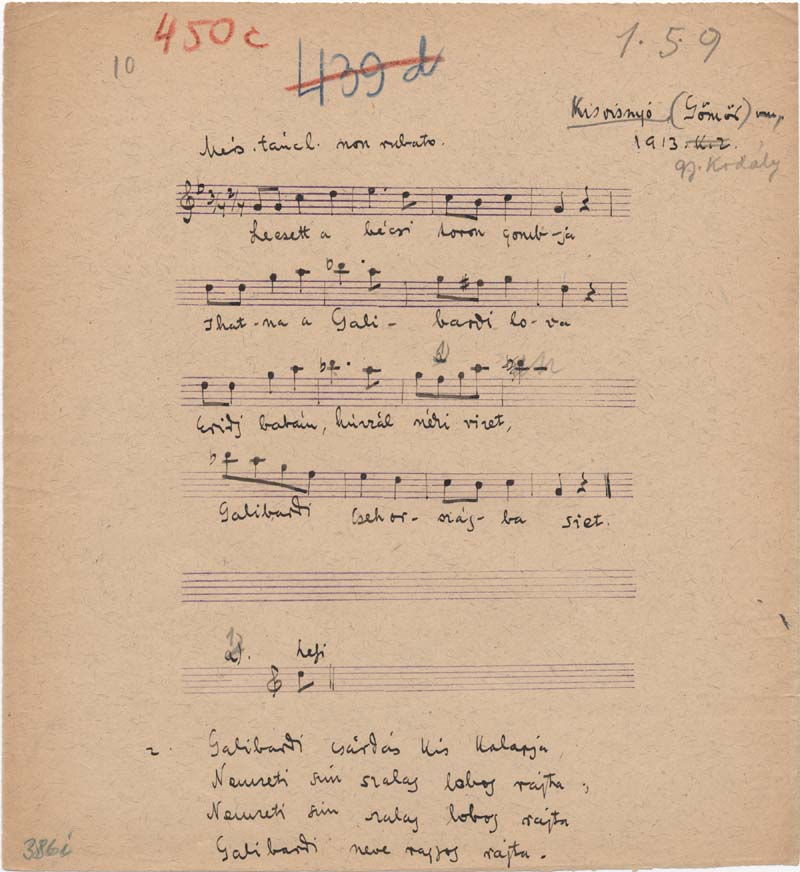 450c
10
439d
1.5.9
Kisvisnyó (Gömör) vm,
Més. táncl. non rubato.
1913. K.z.
gy. Kodály
Leesett a bécsi toron gomb-já
Ihat-na a Gali- bardi lo-va
Eridj babám, húzzál néki vizet,
Galibardi Csehor- szág- ba siet.
a). hefi
2. Galibardi csárdás kis kalapja,
Nemzeti szín szalag lobog rajta;
Nemzeti szín szalag lobog rajta
Galibardi neve ragyog rajta.
386i